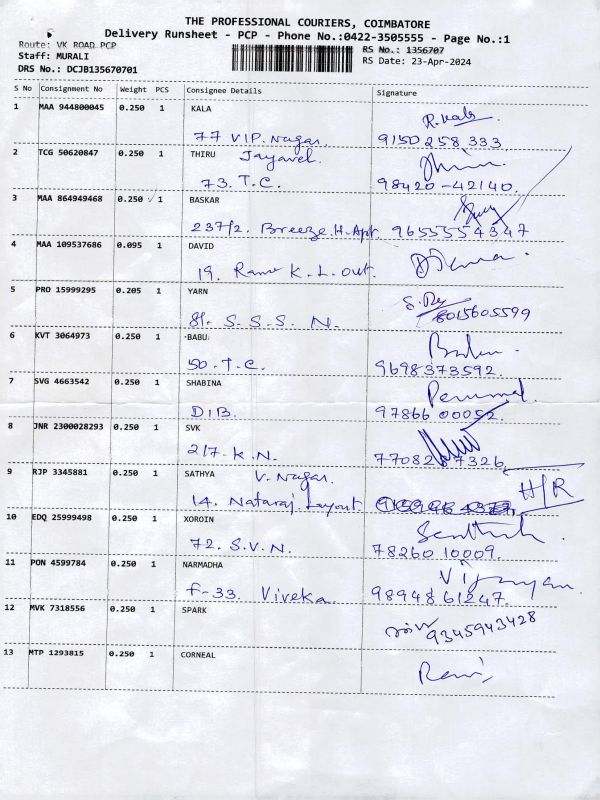 THE PROFESSIONAL COURIERS, COIMBATORE
Delivery Runsheet - PCP - Phone No.:0422-3505555 - Page No.:1
Route: VK ROAD PCP
RS No.: 1356707
Staff: MURALI
RS Date: 23-Apr-2024
DRS No.: DCJB135670701
S No Consignment No Weight PCS Consignee Details Signature
1 MAA 944800045 0.250 1 KALA
77 VIP Nagar. 9150258333
2 TCG 50620847 0.250 1 THIRU Jayavel.
73. T.C. 98420-42140.
3 MAA 864949468 0.250 ✓ 1 BASKAR
237/2. Breeze.H.Apt. 9655554347
4 MAA 109537686 0.095 1 DAVID
19. K.L.out.
5 PRO 15999295 0.205 1 YARN
81. S.S.S. N. 8015605599
6 KVT 3064973 0.250 1 BABU
50.T.C. 9698373592
7 SVG 4663542 0.250 1 SHABINA Perumal.
D1B. 97866 00052
8 JNR 2300028293 0.250 1 SVK
217.K.N. 7708267326
9 RJP 3345881 0.250 1 SATHYA V. Nagar. H/R
14. Nataraj Layout
10 EDQ 25999498 0.250 1 XOROIN Senthil
72. S.V.N. 7826010009.
11 PON 4599784 0.250 1 NARMADHA Vijayan.
F-33. Viveka 9894861247.
12 MVK 7318556 0.250 1 SPARK
9345943428
13 MTP 1293815 0.250 1 CORNEAL Ravi